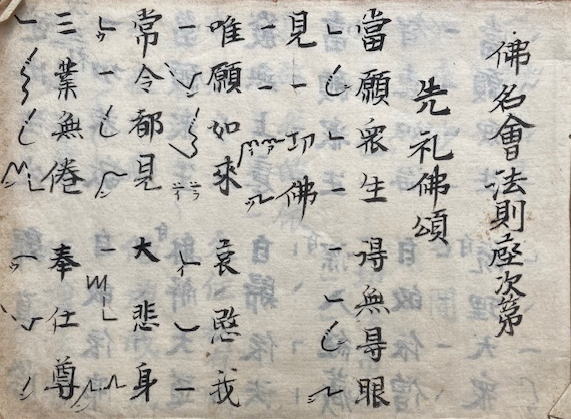 佛名會法則次第
先礼佛頌
當願衆生 得無㝵眼
見一切佛
唯願如來 哀愍我
常令都見 大悲身
三業無倦 奉仕尊